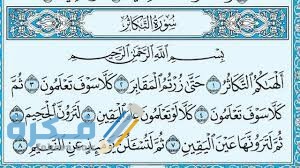 سُورَةُ التَّكَاثُرِ
بِسْمِ اللَّهِ الرَّحْمَٰنِ الرَّحِيمِ
أَلْهَاكُمُ التَّكَاثُرُ ١ حَتَّىٰ زُرْتُمُ الْمَقَابِرَ ٢
كَلَّا سَوْفَ تَعْلَمُونَ ٣ ثُمَّ
كَلَّا سَوْفَ تَعْلَمُونَ ٤ كَلَّا لَوْ تَعْلَمُونَ عِلْمَ الْيَقِينِ ٥ لَتَرَوُنَّ الْجَحِيمَ ٦
ثُمَّ لَتَرَوُنَّهَا عَيْنَ الْيَقِينِ ٧ ثُمَّ لَتُسْأَلُنَّ يَوْمَئِذٍ عَنِ النَّعِيمِ ٨
فكرة